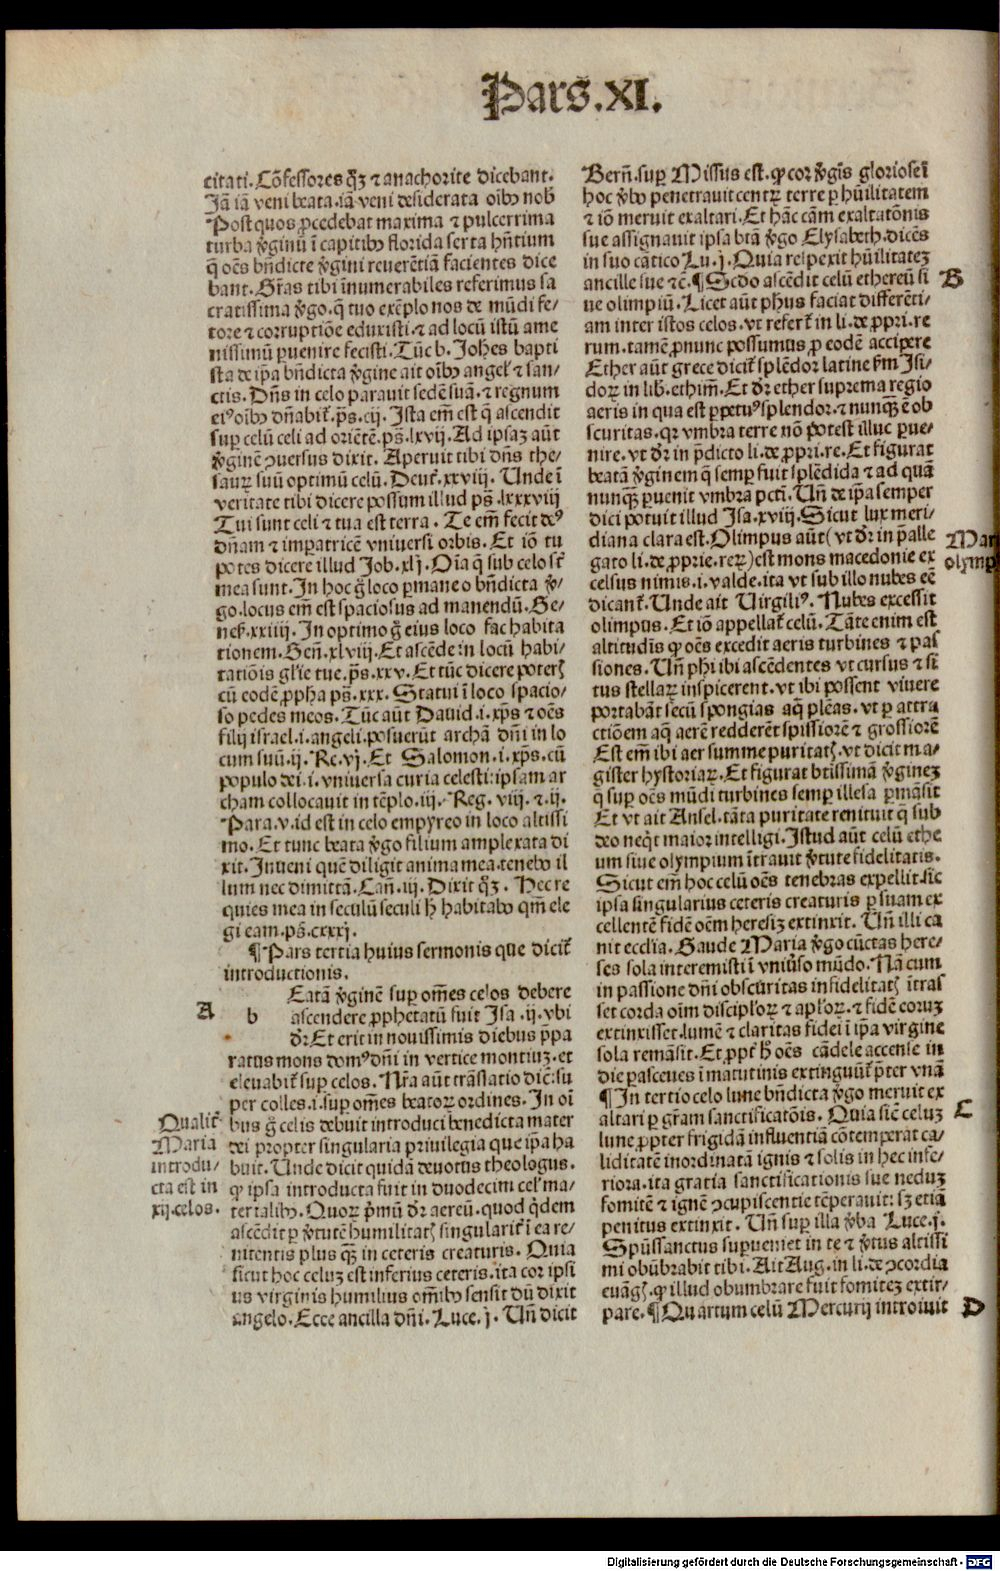 Pars.XI.
citati. Cōfessores qꝫ ⁊ anachorite dicebant.
Jā iā veni beata.iā veni desiderata oībꝰ nob̄
Post quos ꝓcedebat maxima ⁊ pulcerrima
turba v̓ginū ī capitibꝰ florida serta hn̄tium
q̄ oēs bn̄dicte v̓gini reuerētiā facientes dice
bant. Gr̄as tibi īnumerabiles referimus sa
cratissima v̓go.q̄ tuo exēplo nos de mūdi fe-
tore ⁊ corruptiōe eduxisti.⁊ ad locū istū ame
nissimū ꝑuenire fecisti. Tūc b. Joh̄es bapti
sta de ip̄a bn̄dicta v̓gine ait oībꝰ angel̓ ⁊ san-
ctis. Dn̄s in celo parauit sedē suā.⁊ regnum
eiꝰ oībꝰ dn̄abit̓. ps̄.cij. Ista em̄ est q̄ ascendit
suꝑ celū celi ad oriētē. ps̄.lxvij. Ad ipsaꝫ aūt
v̓ginē ↄuersus dixit. Aperuit tibi dn̄s the-
saurꝝ suū optimū celū. Deut̓.xxviij. Unde ī
veritate tibi dicere possum illud ps̄.lxxxviij
Tui sunt celi ⁊ tua est terra. Te em̄ fecit deꝰ
dn̄am ⁊ imꝑatricē vniuersi orbis. Et iō tu
potes dicere illud Job.xlj. Oīa q̄ sub celo st̄
mea sunt. In hoc g̊ loco ꝑmane o bn̄dicta v̓-
go.locus em̄ est spaciosus ad manendū. Ge-
nes̓.xxiiij. In optimo g̊ eius loco fac habita
tionem. Gen̄.xlviij. Et ascēde in locū habi-
tatiōis gl̓ie tue. ps̄.xxv. Et tūc dicere poterꝭ
cū eodē ꝓpha ps̄.xxx. Statui ī loco spacio-
so pedes meos. Tūc aūt Dauid.i.xp̄s ⁊ oēs
filij israel.i.angeli.posuerūt archā dn̄i in lo
cum suū.ij. Re.vj. Et Salomon.i.xp̄s.cū
populo dei.i.vniuersa curia celesti:ipsam ar
cham collocauit in tēplo.iij. Reg. viij.⁊.ij.
Para.v.id est in celo empyreo in loco altissi
mo. Et tunc beata v̓go filium amplexata di
xit. Inueni quē diligit anima mea.tenebo il
lum nec dimittā. Can̄.iij. Dixit qꝫ. Hec re
quies mea in seculū seculi h̄ habitabo qm̄ ele
gi eam.ps̄.cxxxj.
¶Pars tertia huius sermonis que dicit̓
introductionis.
A
b Eatā v̓ginē suꝑ om̄es celos debere
ascendere ꝓphetatū fuit Isa.ij.vbi
dr̄. Et erit in nouissimis diebus p̄pa
ratus mons domꝰ dn̄i in vertice montiuꝫ.et
eleuabit̓ suꝑ celos. Nr̄a aūt trāslatio dic̄:su
per colles.i.suꝑ om̄es beatorꝝ ordines. In oī
bus g̊ celis debuit introduci benedicta mater
dei propter singularia priuilegia que ip̄a ha
buit. Unde dicit quidā deuotus theologus.
ꝙ ipsa introducta fuit in duodecim cel̓ ma-
terialibꝰ. Quorꝝ p̓mū dr̄ aereū.quod q̓dem
ascēdit ꝑ v̓tutē humilitatꝭ singularit̓ ī ea re-
nitentis plus qꝫ in ceteris creaturis. Quia
sicut hoc celuꝫ est inferius ceteris.ita cor ipsi
us virginis humilius om̄ibꝰ sensit dū dixit
angelo. Ecce ancilla dn̄i. Luce.j. Un̄ dicit
Qualit̓
Maria
introdu-
cta est in
xij.celos.
Bern̄.suꝑ Missus est.ꝙ cor v̓gīs gloriose ī
hoc v̓bo penetrauit centrꝝ terre ꝑ hūilitatem
⁊ iō meruit exaltari. Et hāc cām exaltatōnis
sue assignauit ipsa bt̄a v̓go Elysabeth.dicēs
in suo cātico Lu.j. Quia respexit hūilitateꝫ
ancille sue ⁊c̄.¶Scd̄o ascēdit celū ethereū si
ue olimpiū. Licet aūt ph̄us faciat differēti-
am inter istos celos.vt refert̓ in li.de ꝓpri.re
rum.tamē ꝓnunc possumus ꝓ eodē accipere
Ether aūt grece dicit̓ splēdor latine ẜm Isi-
dorꝝ in lib.ethim̄. Et dr̄ ether suprema regio
aeris in qua est ꝑpetuꝰ splendor.⁊ nunqꝫ ē ob
scuritas.qr̄ vmbra terre nō potest illuc ꝑue-
nire.vt dr̄ in p̄dicto li.de ꝓpri.re. Et figurat
beatā v̓ginem q̄ semꝑ fuit splēdida ⁊ ad quā
nunqꝫ ꝑuenit vmbra pcti. Un̄ de ip̄a semper
dici potuit illud Isa.xviij. Sicut lux meri-
diana clara est. Olimpus aūt (vt dr̄ in p̄alle
gato li.de ꝓprie.rerꝝ) est mons macedonie ex
celsus nimis.i.valde.ita vt sub illo nubes eē
dicant̓. Unde ait Uirgiliꝰ. Nubes excessit
olimpus. Et iō appellat̓ celū. Tāte enim est
altitudīs ꝙ oēs excedit aeris turbines ⁊ pas
siones. Un̄ ph̄i ibi ascēdentes vt cursus ⁊ si
tus stellarꝝ inspicerent.vt ibi possent viuere
portabāt secū spongias aq̄ plēas.vt ꝑ attra
ctiōem aq̄ aerē redderēt spissiorē ⁊ grossiorē
Est em̄ ibi aer summe puritatꝭ.vt dicit ma-
gister hystoriarꝝ. Et figurat btīssimā v̓gineꝫ
q̄ suꝑ oēs mūdi turbines semꝑ illesa ꝑmāsit
Et vt ait Ansel.tāta puritate renituit q̄ sub
deo neq̓t maior intelligi. Istud aūt celū ethe
um siue olympium ītrauit v̓tute fidelitatis.
Sicut em̄ hoc celū oēs tenebras expellit.sic
ipsa singularius ceteris creaturis ꝑ suam ex
cellentē fidē oēm heresiꝫ extinxit. Un̄ illi ca
nit ecclīa. Gaude Maria v̓go cūctas here-
ses sola interemisti ī vniv̓so mūdo. Nā cum
in passione dn̄i obscuritas infidelitatꝭ itras
set corda oīm discipl̓orꝝ ⁊ apl̓orꝝ.⁊ fidē coruꝫ
extinxisset.lumē ⁊ claritas fidei ī ip̄a virgine
sola remāsit. Et ꝓpt̓ h̄ oēs cādele accense in
die ꝑasceues ī matutinis extinguūt̓ p̄ter vnā
¶In tertio celo lune bn̄dicta v̓go meruit ex
altari ꝑ gr̄am sanctificatōis. Quia sic̄ celuꝫ
lune ꝓpter frigidā influentiā cōtemperat ca-
liditatē inordinatā ignis ⁊ solis in hec infe-
riora.ita gratia sanctificationis sue neduꝫ
fomitē ⁊ ignē ↄcupiscentie tēperauit:sꝫ etiā
penitus extinxit. Un̄ suꝑ illa v̓ba Luce.j.
Spūssanctus suꝑueniet in te ⁊ v̓tus altissi
mi obūbrabit tibi. Ait Aug.in li.de ↄcordia
euāgꝭ.ꝙ illud obumbrare fuit fomiteꝫ extir-
pare.¶Quartum celū Mercurij introiuit
B
Mar
olymp
C
D
Digitalisierung gefördert durch die Deutsche Forschungsgemeinschaft - DFG